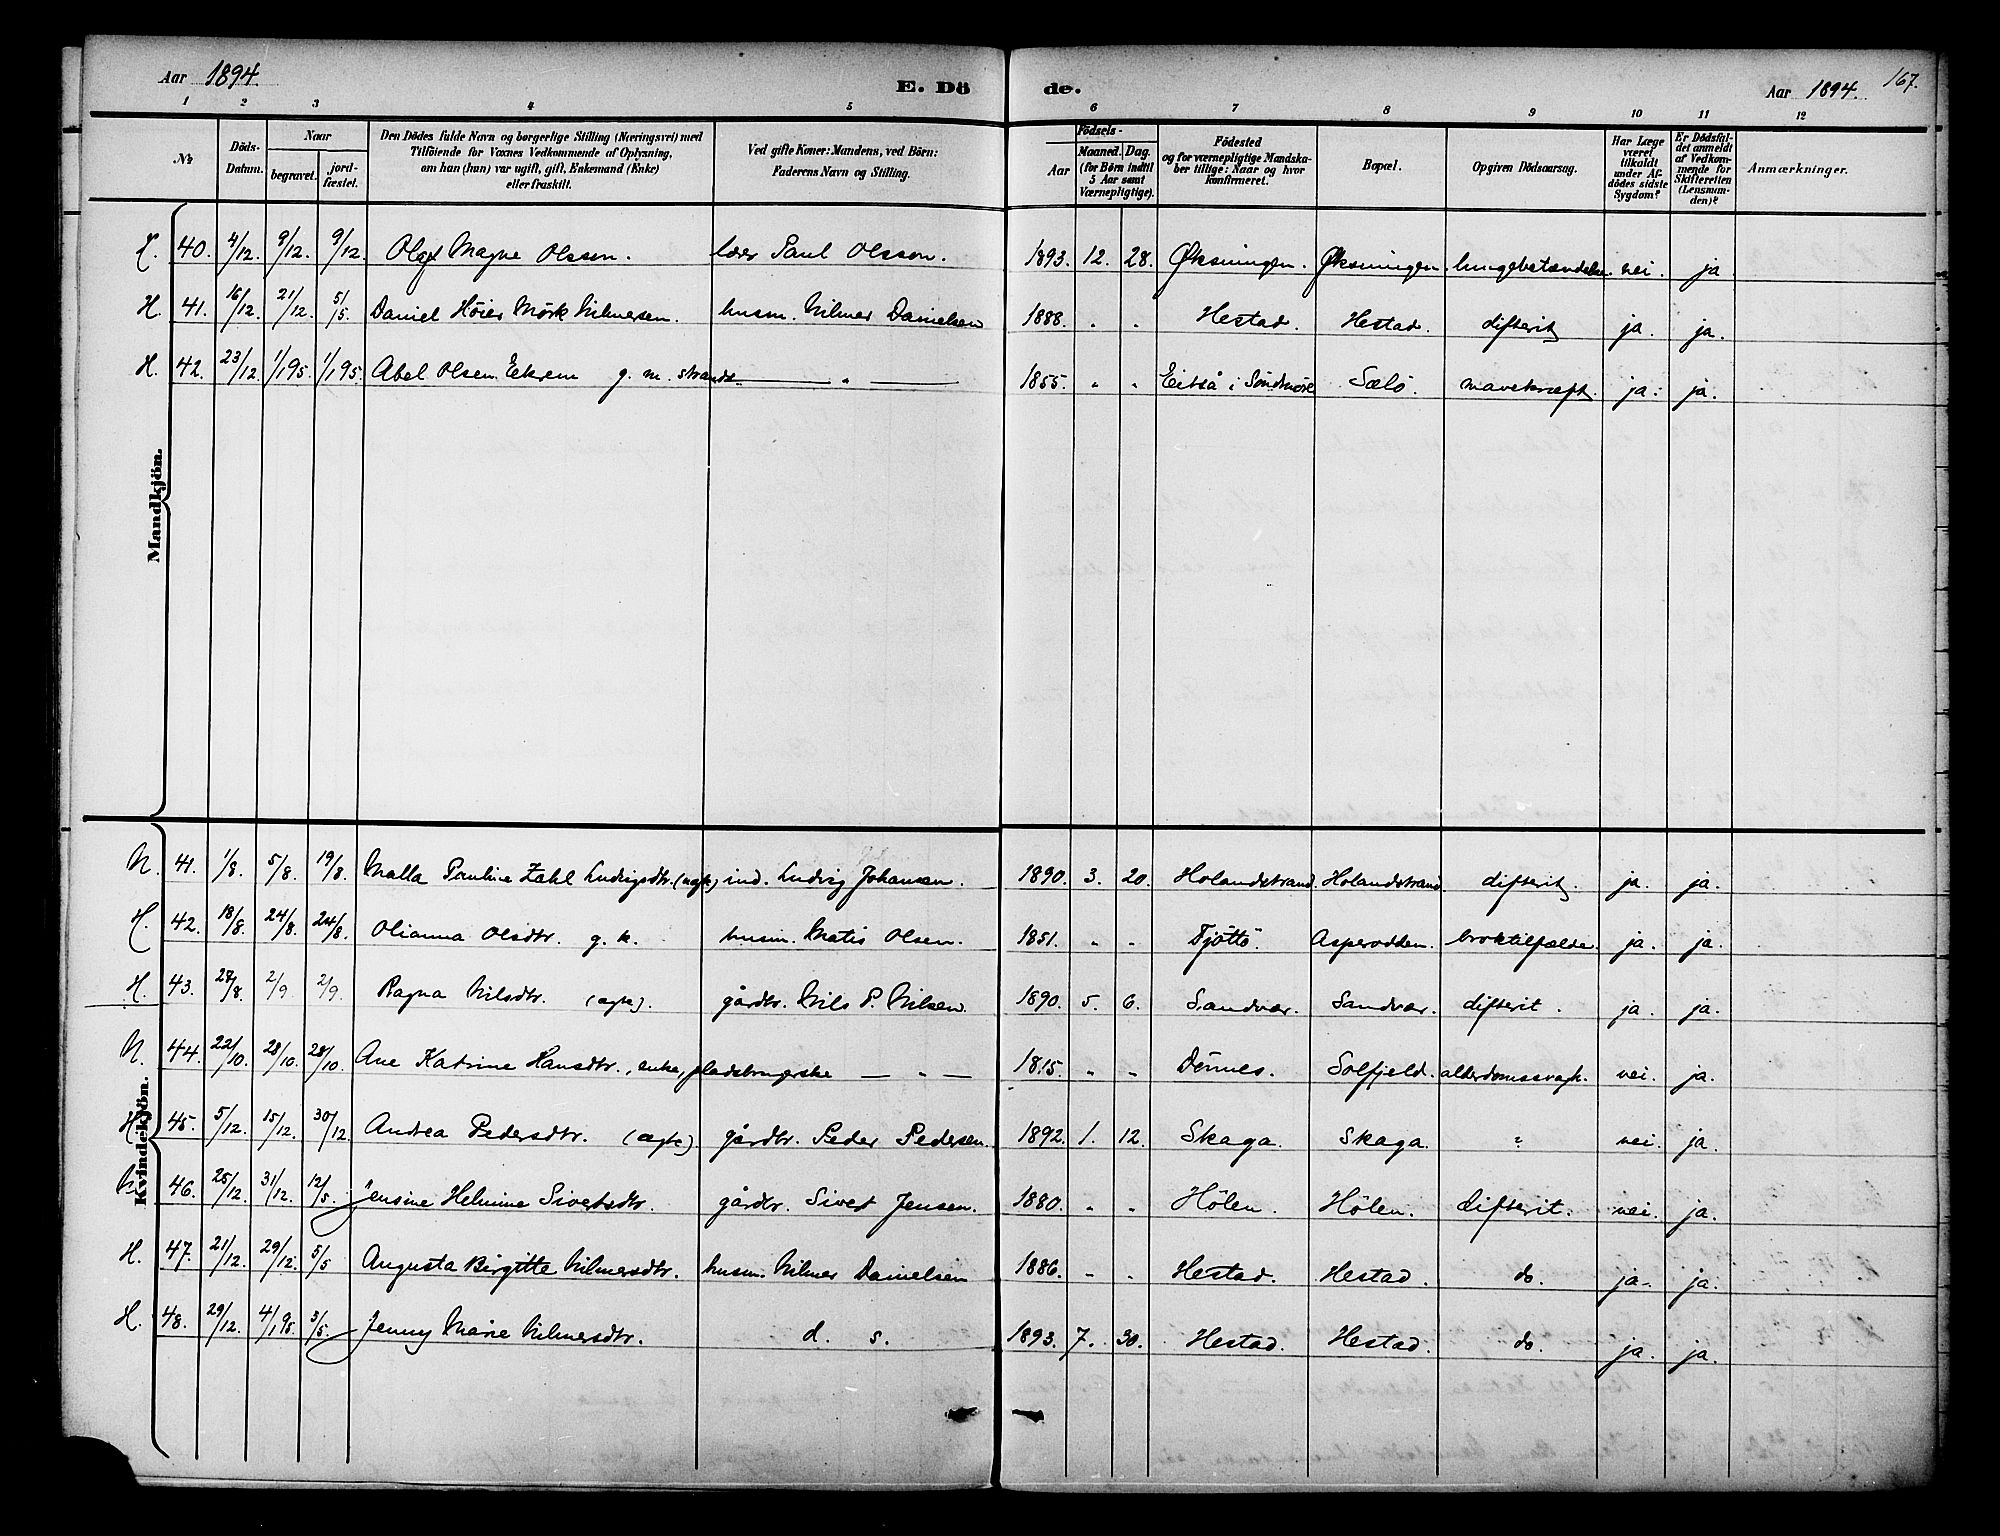 Aar 1894.
E. Dö
de.
Aar 1894.
167.
1 2 3 4 5 6 7 8 9 10 11 12
No
Döds-Datum.
Naar
begravet.
jord-fæstet.
Den Dödes fulde Navn og borgerlige Stilling (Næringsvei) med
Tilföiende for Voxnes Vedkommende af Oplysning,
om han (hun) var ugift, gift, Enkemand (Enke)
eller fraskilt.
Ved gifte Koner: Mandens, ved Börn:
Faderens Navn og Stilling.
Födsels-
Aar
Maaned.
Dag.
(for Börn indtil
5 Aar samt
Værnepligtige).
Födested
og for værnepligtige Mandska-
ber tillige: Naar og hvor
konfirmeret.
Bopæl.
Opgiven Dödsaarsag.
Har Læge
været
tilkaldt
under Af-
dödes sidste
Sygdom?
Er Dödsfal-
det anmeldt
af Vedkom-
mende for
Skifteretten
(Lensman-
den)?
Anmærkninger.
Mandkjön.
H. 40. 4/12. 9/12. 9/12. Olaf Magne Olsson. lærer Paul Olsson. 1893. 12. 28. Øksningen. Øksningen. lungebetændelse. nei. ja
H. 41. 16/12. 21/12. 5/5. Daniel Höier Mörk Nilmersen. husm. Nilmer Danielsen 1888. " " Hestad. Hestad. difterit ja. ja.
H. 42. 23/12. 1/1 95. 1/1 95. Abel Olsen Eekrem g. m. strands. — " — 1855. " " Eitså i Söndmöre Sælö. mavekræft. ja. ja.
Kvindekjön.
N. 41. 1/8. 5/8. 19/8. Malla Pauline Zahl Ludvigsdtr. (ægte) ind. Ludvig Johansen. 1890. 3. 20. Holandstrand. Holandstrand. difterit. ja. ja.
H. 42. 18/8. 24/8. 24/8. Olianna Olsdtr. g. k. husm. Matis Olsen. 1851. " " Tjöttö. Asperodden. broktilfælde. ja. ja.
H. 43. 28/8. 2/9 2/9. Ragna Nilsdtr. (ægte). gårdbr. Nils P. Nilsen. 1890. 5. 6. Sandvær. Sandvær. difterit. ja. ja.
N. 44. 22/10. 28/10. 28/10 Ane Katrine Hansdtr., enke, pladsbrugerske — " — 1815. " " Dönnes. Solfjeld. alderdomssvagh. nei. ja.
H. 45. 5/12. 15/12. 30/12. Andrea Pedersdtr. (ægte) gårdbr. Peder Pedersen. 1892. 1. 12. Skaga. Skaga. ? nei. ja.
N. 46. 25/12. 31/12. 12/5. Jensine Helmine Sivertsdtr. gårdbr. Sivert Jensen. 1880. " " Hölen. Hölen. difterit. nei. ja.
H. 47. 21/12. 29/12. 5/5 Augusta Birgitte Nilmersdtr. husm. Nilmer Danielsen 1886. " " Hestad. Hestad. do. ja. ja.
H. 48. 29/12. 4/1 95. 5/5. Jenny Marie Nilmersdtr. d. s. 1893. 7. 30. Hestad. Hestad. do. ja. ja.